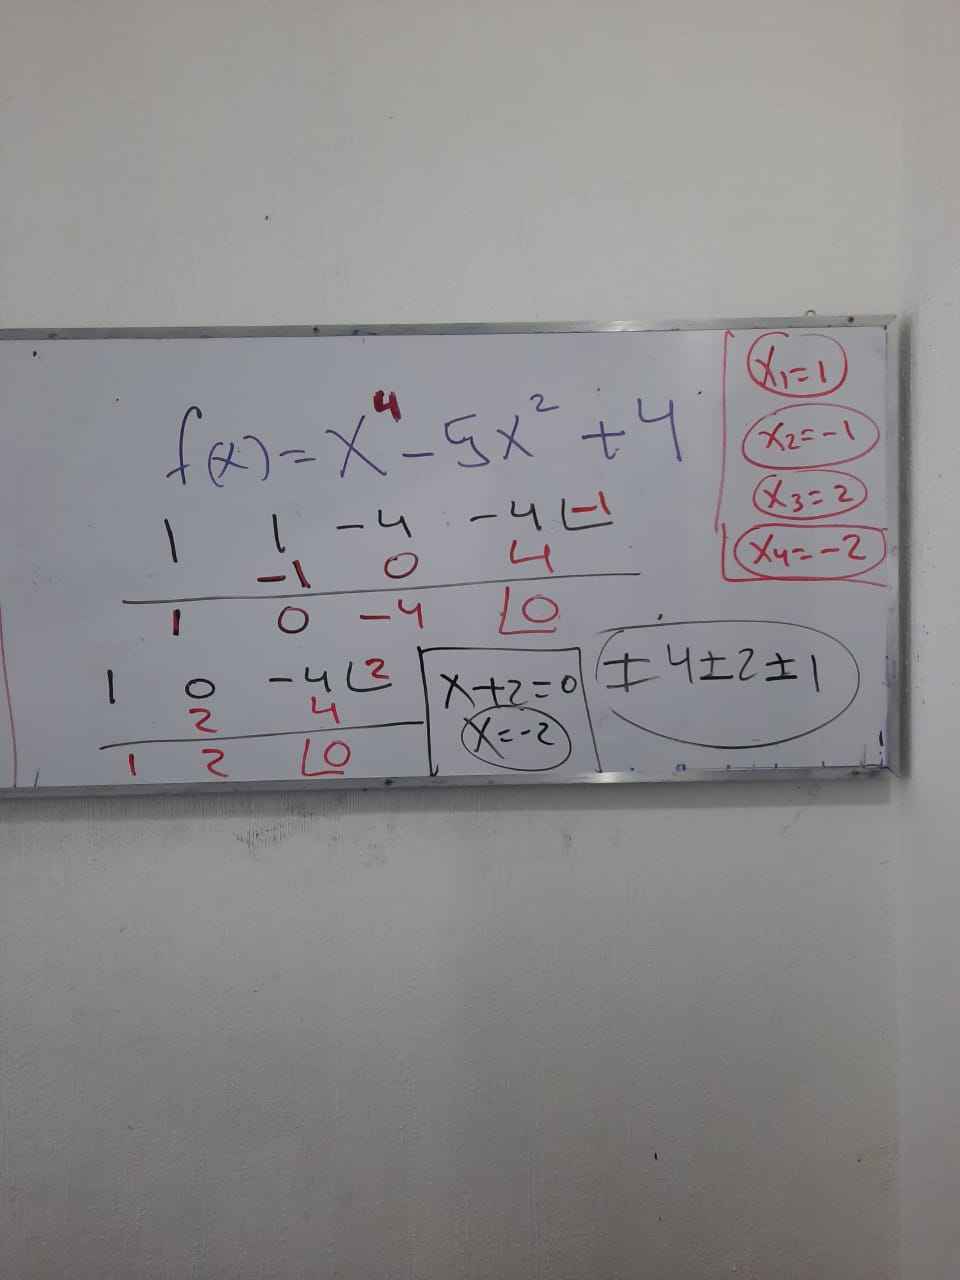 f(x)=x⁴-5x²+4
1 1 -4 -4 ∟-1
-1 0 4
1 0 -4 ∟0
1 0 -4 ∟2
2 4
1 2 ∟0
x+2=0
x=-2
±4±2±1
x₁=1
x₂=-1
x₃=2
x₄=-2